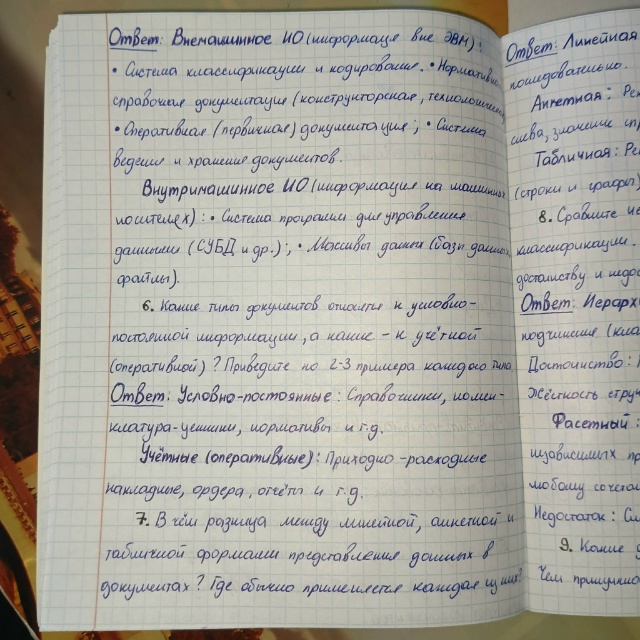 Ответ: Внемашинное ИО (информация вне ЭВМ):
• Система классификации и кодирования. • Нормативно
справочная документация (конструкторская, технологическая)
• Оперативная (первичная) документация; • Система
ведения и хранения документов.
Внутримашинное ИО (информация на машинных
носителях): • Система программ для управления
данными (СУБД и др.); • Массивы данных (базы данных,
файлы).
6. Какие типы документов относятся к условно-
постоянной информации, а какие – к учётной
(оперативной)? Приведите по 2-3 примера каждого типа
Ответ: Условно-постоянные: Справочники, номен-
клатура-ценники, нормативы и т.д.
Учётные (оперативные): Приходно-расходные
накладные, ордера, отчёты и т.д.
7. В чём разница между линейной, анкетной и
табличной формами представления данных в
документах? Где обычно применяется каждая из них?
Ответ: Линейная
последовательно.
Анкетная:
слева, значение
Табличная:
(строки и графы)
8. Сравните
классификации.
достоинству и
Ответ:
подчинение
Достоинство:
Жёсткость
Фасетный:
независимых
любому
Недостаток:
9. Какие
Чем